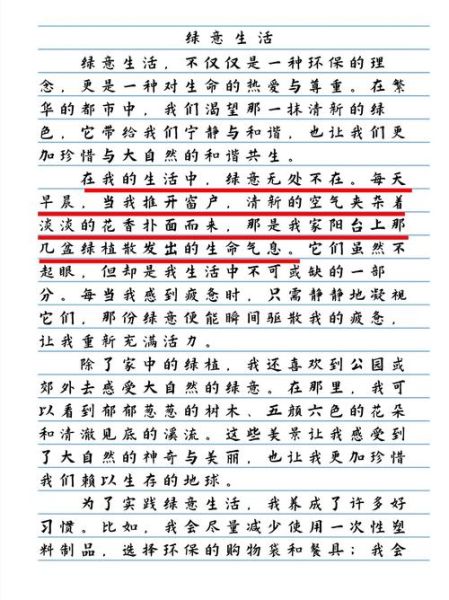 绿意生活
绿意生活，不仅仅是一种环保的理
念，更是一种对生命的热爱与尊重。在繁
华的都市中，我们渴望那一抹清新的绿
色，它带给我们宁静与和谐，也让我们更
加珍惜与大自然的和谐共生。
在我的生活中，绿意无处不在。每天
早晨，当我推开窗户，清新的空气夹杂着
淡淡的花香扑面而来，那是我家阳台上那
几盆绿植散发出的生命气息。它们虽然不
起眼，但却是我生活中不可或缺的一部
分。每当我感到疲惫时，只需静静地凝视
它们，那份绿意便能瞬间驱散我的疲惫，
让我重新充满活力。
除了家中的绿植，我还喜欢到公园或
郊外去感受大自然的绿意。在那里，我可
以看到郁郁葱葱的树木、五颜六色的花朵
和清澈见底的溪流。这些美景让我感受到
了大自然的神奇与美丽，也让我更加珍惜
我们赖以生存的地球。
为了实践绿意生活，我养成了许多好
习惯。比如，我会尽量减少使用一次性塑
料制品，选择环保的购物袋和餐具；我会